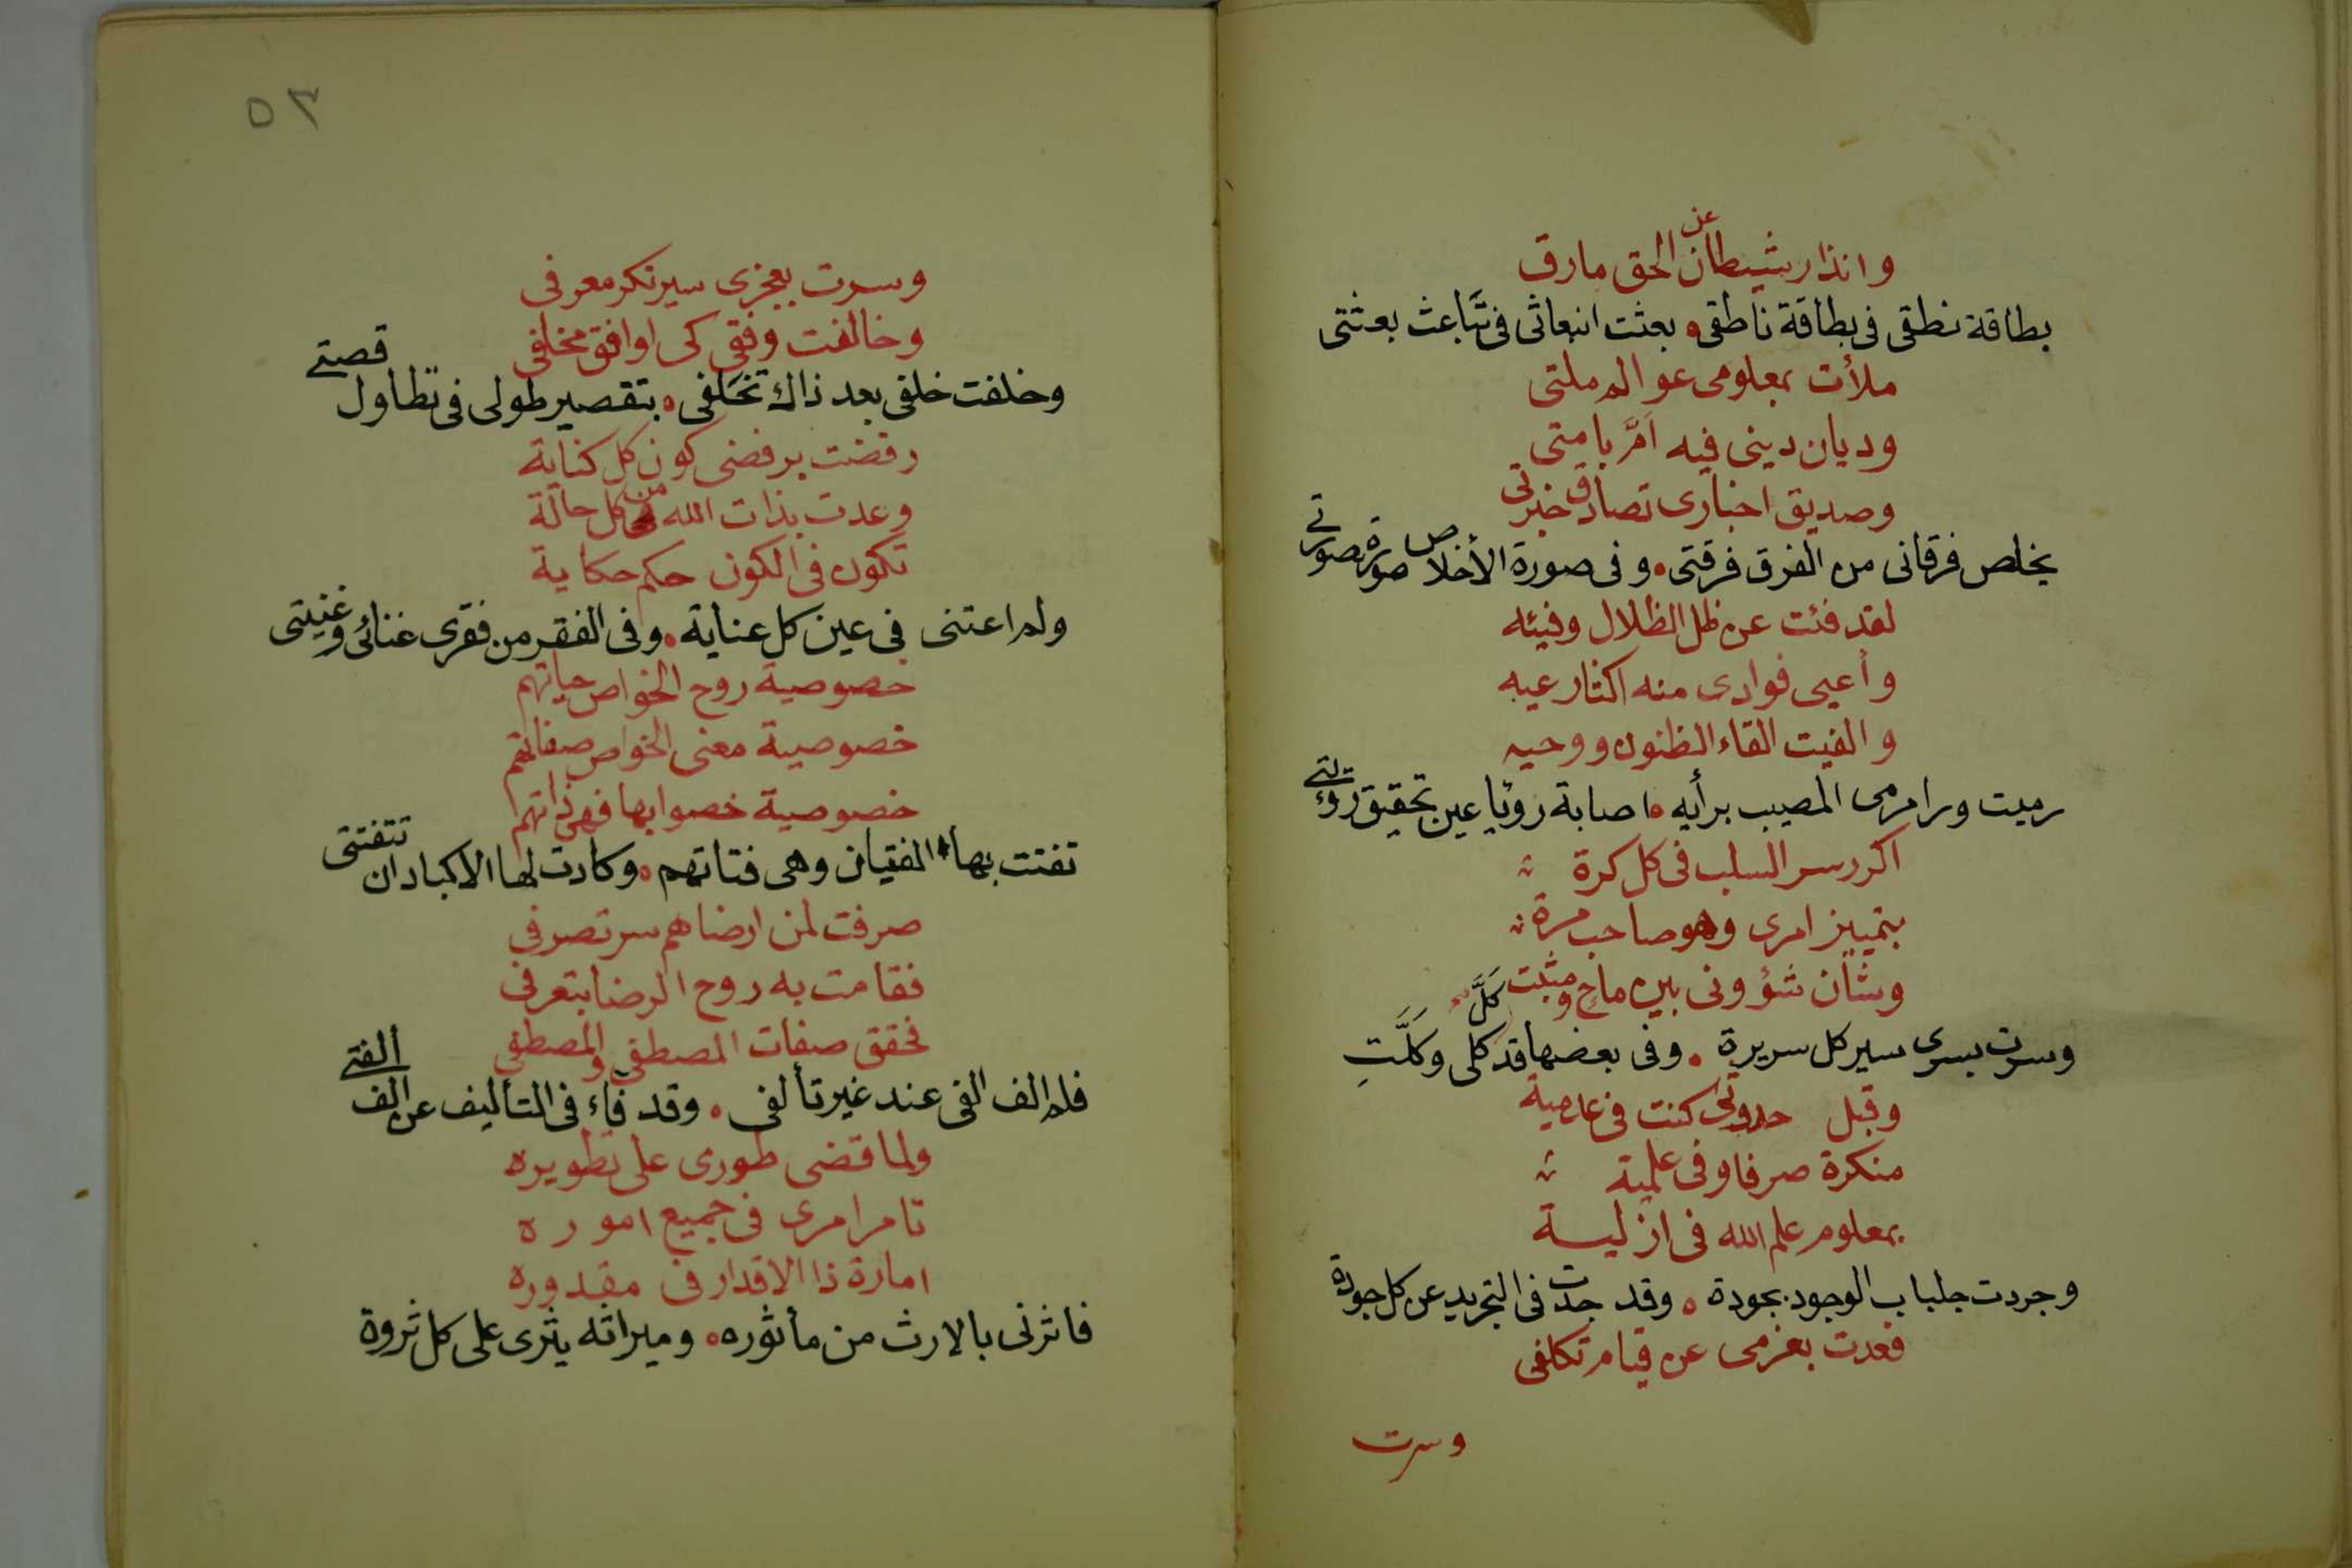 وانذار شيطان عن الحق مارق
بطاقة نطقى فى بطاقة ناطقى • بعثت انبعاثى فى تباعث بعثتى
ملأت بمعلومى عوالم ملتى
وديان دينى فيه أمّ بامتى
وصديق اخبارى تصادق خبرتى
يخلص فرقانى من الفرق فرقتى • وفى صورة الأخلاص صورة صورتى
لقد فئت عن ظل الظلال وفيئه
وأعيى فوادى منه اكثار عيه
والفيت القاء الظنون ووحيه
رميت ورامى رمى المصيب برأيه • اصابة رؤيا عين تحقيق رؤيتى
اكرر سر السلب فى كل كرة
بتمييز امرى وهو صاحب مرة
وشأن شؤونى بين ماح ومثبت
وسرت بسرى سير كل سريرة • وفى بعضها قد كلّ كلى وكلّت
وقبل حدوثى كنت فى عدمية
منكرة صرفا وفى علمية
بمعلوم علم الله فى ازلية
وجردت جلباب الوجود بجودة • وقد جدت فى التجريد عن كل جودة
فعدت بعزمى عن قيام تكلفى
وسرت
٥٣
وسرت بعجزى سير نكر معرفى
وخالفت وفقى كى اوافق مخلفى
وخلفت خلفى بعد ذاك تخلفى • بتقصير طولى فى تطاول قصتى
رفضت برفضى كون كل كناية
وعدت بذات الله من كل حالة
تكون فى الكون حكم حكاية
ولم اعتنى فى عين كل عناية • وفى الفقر من فقرى غنائى وغنيتى
خصوصية روح الخواص حياتهم
خصوصية معنى الخواص صفاتهم
خصوصية خصوا بها فهى ذاتهم
تفتت بها الفتيان وهى فتاتهم • وكادت لها الاكباد ان تتفتتى
صرفت لمن ارضاهم سر تصرفى
فقامت به روح الرضا بتعرفى
فحقق صفات المصطفى والمصطفى
فلم الف الفى عند غير تألفى • وقد فاء فى التأليف عن الف ألفتى
ولما قضى طورى على تطويره
تامر امرى فى جميع اموره
امارة ذا الاقدار فى مقدوره
فاثرنى بالارث من مأثوره • وميراثه يثرى على كل ثروة